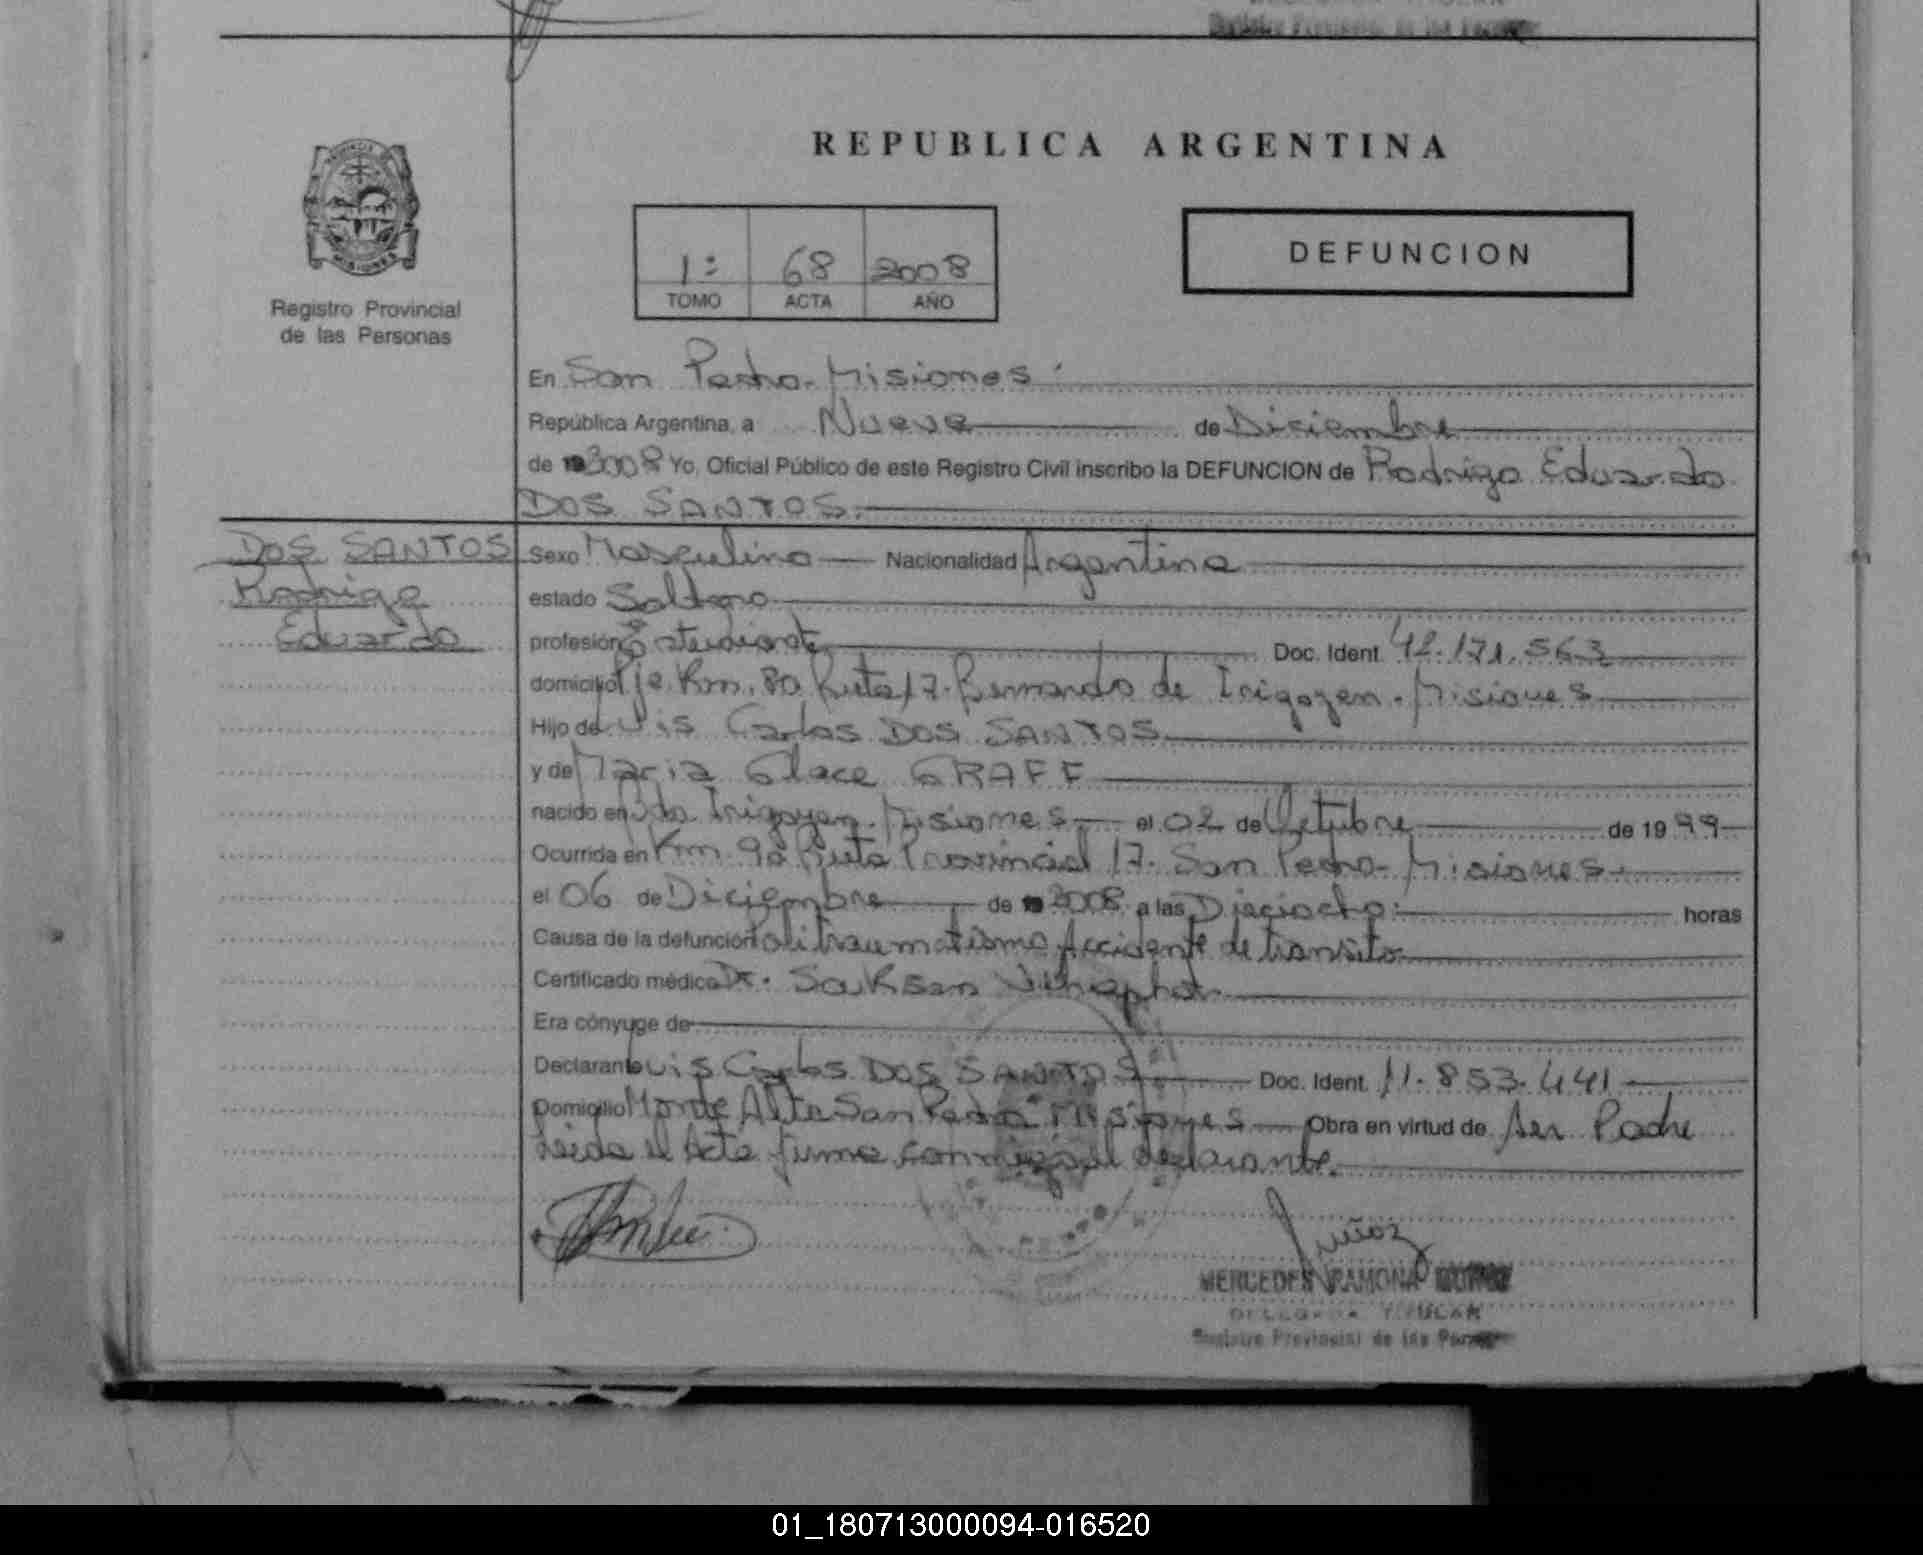 Registro Provincial de las Personas
REPUBLICA ARGENTINA
1: 68 2008
TOMO ACTA AÑO
DEFUNCION
Registro Provincial
de las Personas
En San Pedro - Misiones
República Argentina, a Nueve de Diciembre
de 2008 Yo, Oficial Público de este Registro Civil inscribo la DEFUNCION de Rodrigo Eduardo
DOS SANTOS.
DOS SANTOS
Rodrigo
Eduardo
Sexo Masculino Nacionalidad Argentina
estado Soltero
profesión Estudiante Doc. Ident. 42.171.563
domicilio Pje Km. 80 Ruta 17. Bernardo de Irigoyen - Misiones
Hijo de Luis Carlos DOS SANTOS
y de Maria Glace GRAFF
nacido en Bdo Irigoyen - Misiones el 02 de Octubre de 1999
Ocurrida en Km 90 Ruta Provincial 17. San Pedro - Misiones.
el 06 de Diciembre de 2008 a las Dieciocho: horas
Causa de la defunción Politraumatismo Accidente de transito
Certificado médico Dr.
Era cónyuge de
Declarante Luis Carlos DOS SANTOS Doc. Ident. 11.853.441
Domicilio Monte Alto San Pedro Misiones Obra en virtud de Ser Padre
Leida el Acta firma conmigo el declarante.
Muñoz
MERCEDES RAMONA MUÑOZ
DELEGADA TITULAR
Registro Provincial de las Personas
01_180713000094-016520